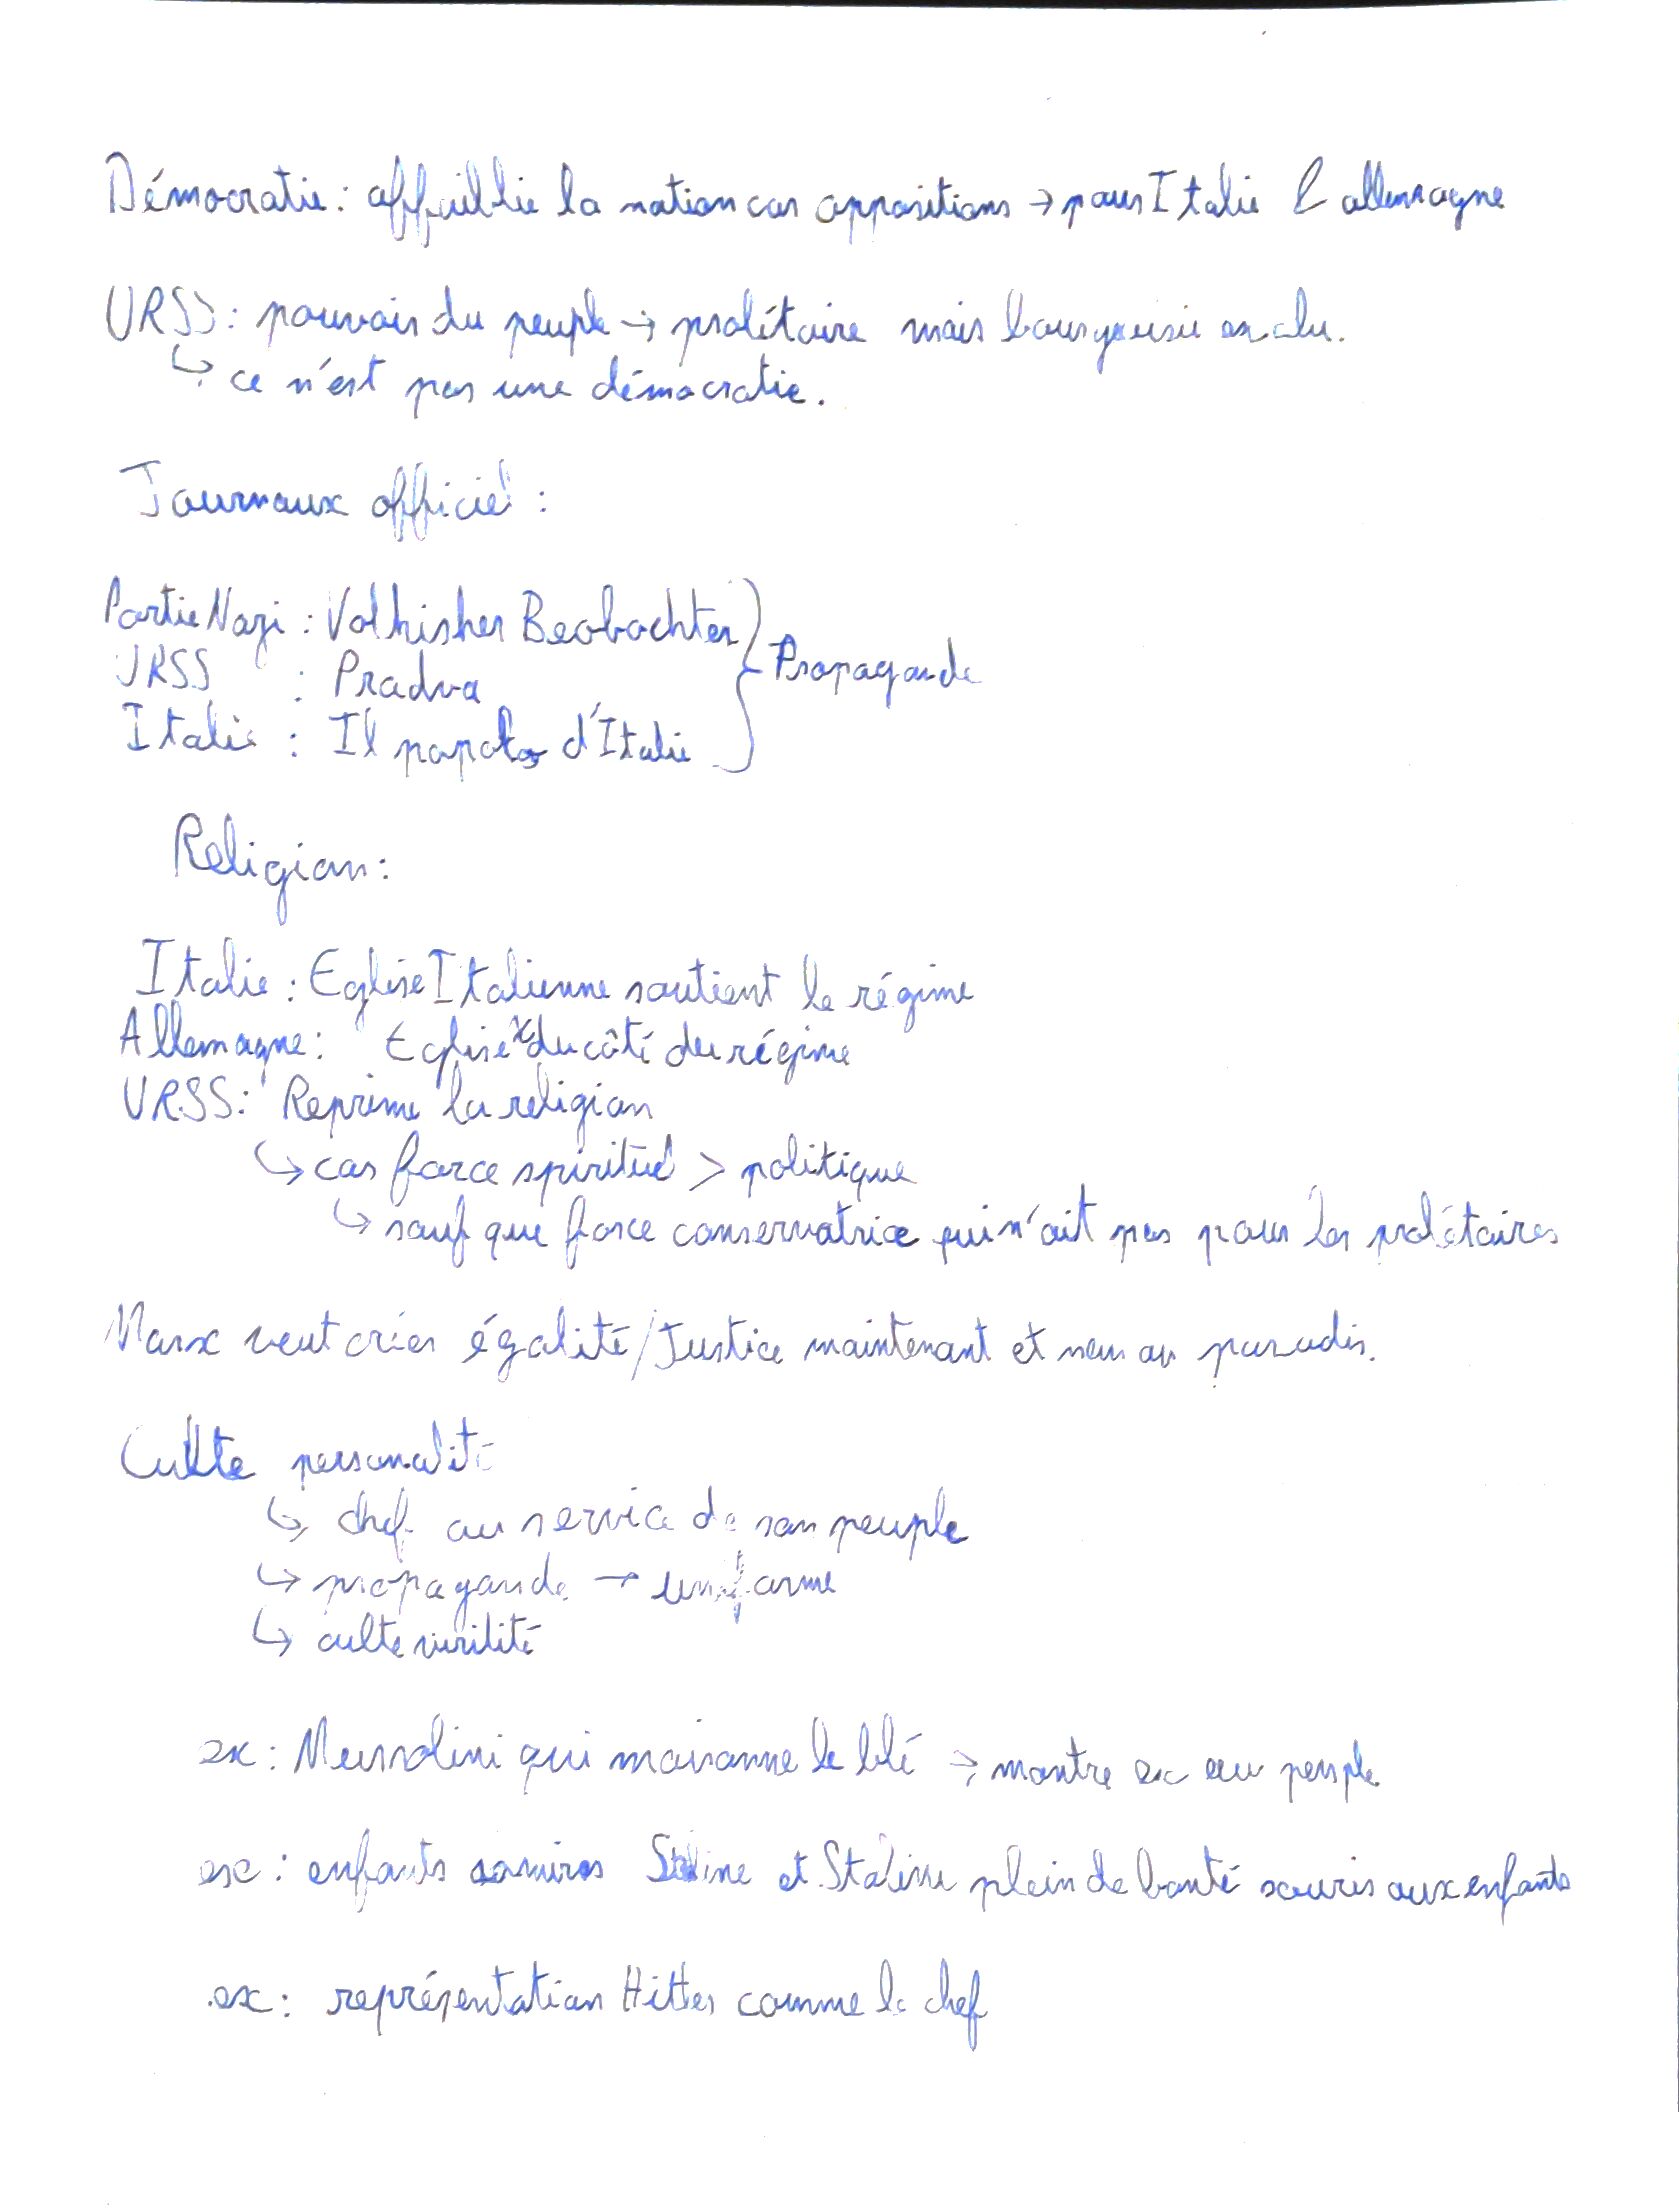 Démocratie : affaiblie la nation car oppositions → pour Italie & allemagne
URSS : pouvoir du peuple → prolétaire mais bourgeoisie exclu.
↳ ce n'est pas une démocratie.
Journaux officiel :
Partie Nazi : Volkisher Beobachter
URSS : Pradva
Italie : Il popolo d'Italie
} Propagande
Religion :
Italie : Eglise Italienne soutient le régime
Allemagne : Eglise x du côté du régime
URSS : Reprime la religion
↳ car force spirituel > politique
↳ sauf que force conservatrice qui n'ait pas pour les prolétaires
Marx veut créer égalité/Justice maintenant et non au paradis.
Culte personalité
↳ chef au service de son peuple
↳ propagande → uniforme
↳ culte virilité
ex : Mussolini qui moisonne le blé → montre ex au peuple
ex : enfants Staline et Staline plein de bonté souris aux enfants
ex : représentation Hitler comme le chef